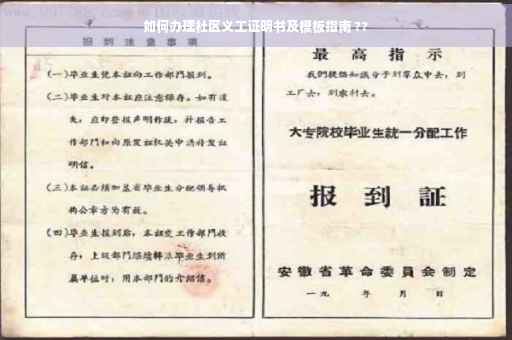 如何办理社区义工证明书及模板指南 ??
报到注意事项
(一)毕业生凭本证向工作部门报到。
(二)毕业生对本证应注意保存。如有遗
失,应即登报声明作废,并报告工
作部门和向原发证机关申请补发证
明信。
(三)本证必须加盖省毕业生分配领导机
构公章方为有效。
(四)毕业生报到后,本证交工作部门收
存;上级部门继续转派毕业生到所
属单位时,用本部门的介绍信。
最高指示
我们提倡知识分子到群众中去,到
工厂去,到农村去。
大专院校毕业生统一分配工作
报到证
安徽省革命委员会制定
一九 年 月 日